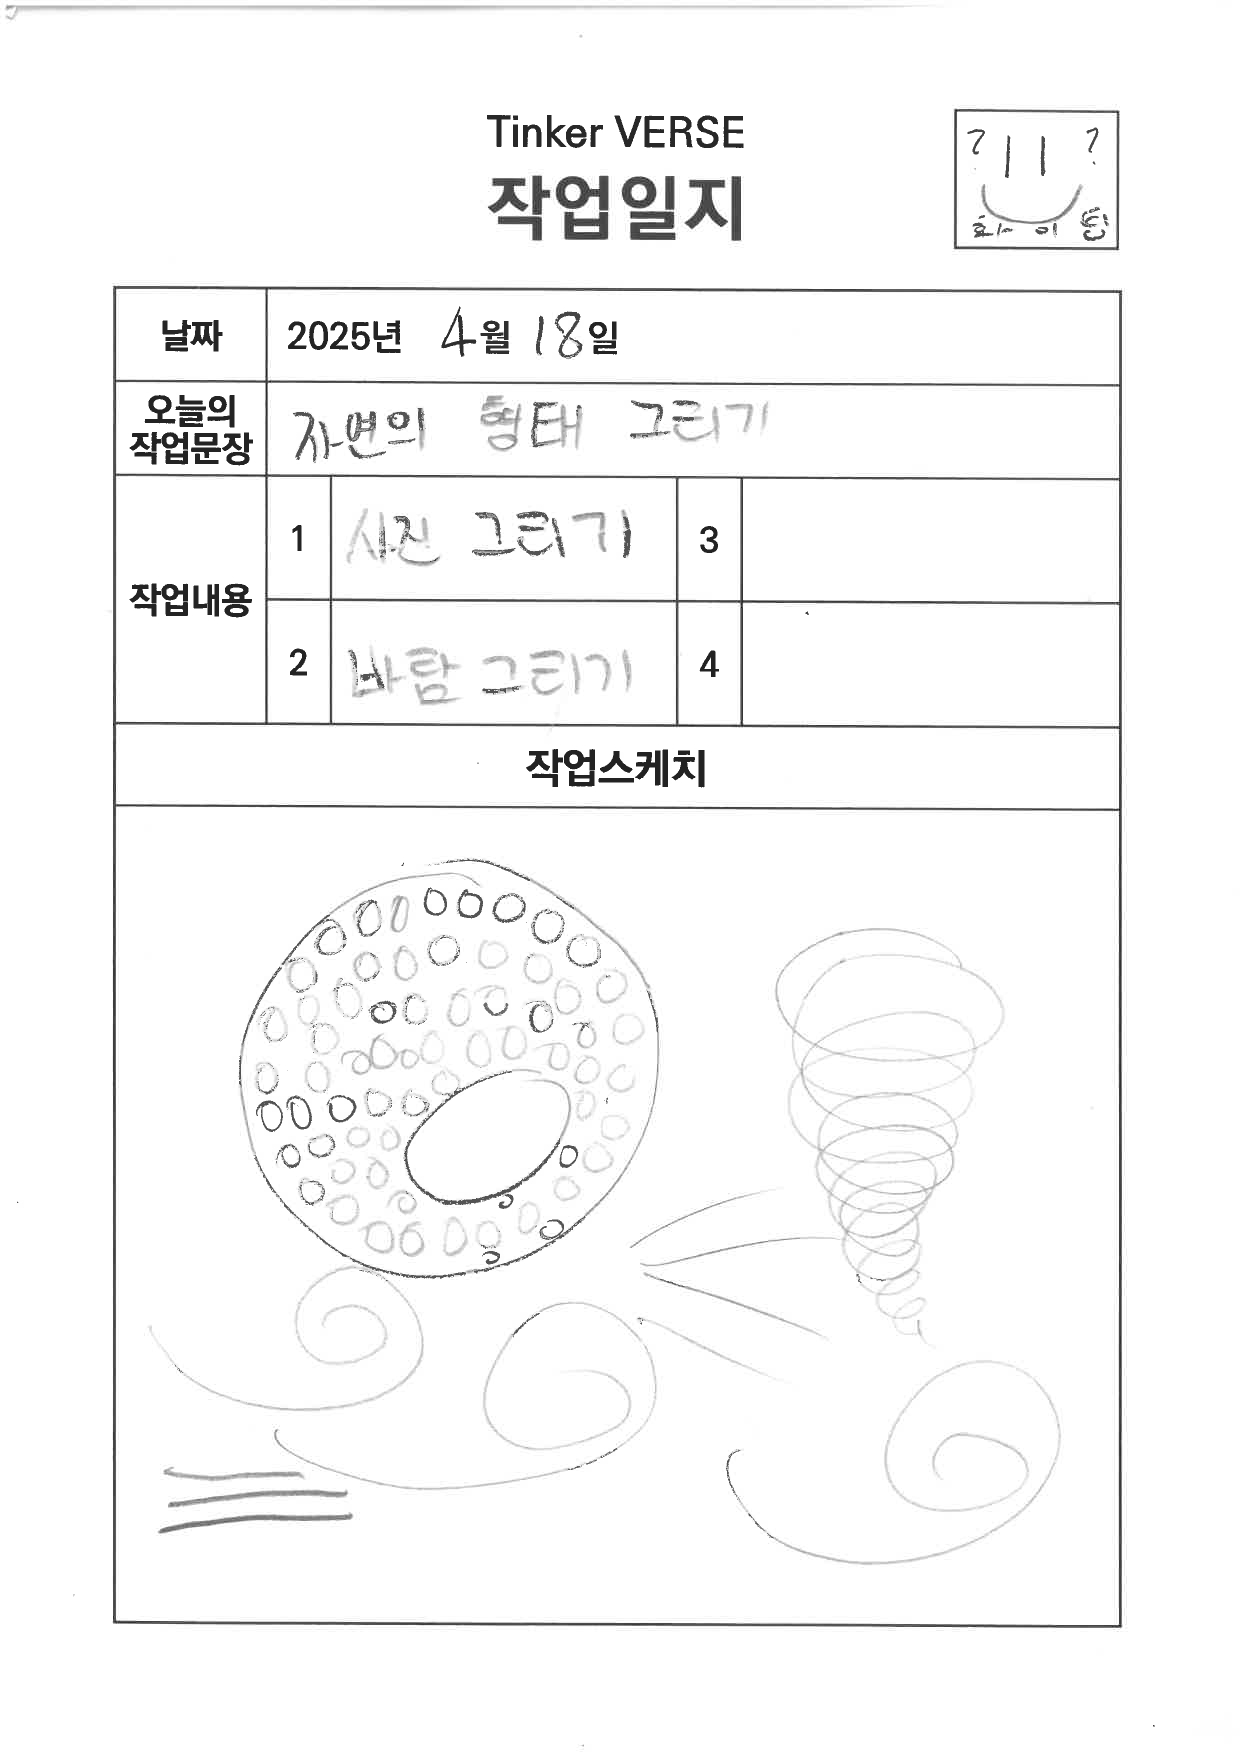 Tinker VERSE
작업일지
? ?
화이팅
날짜 2025년 4월 18일
오늘의 작업문장 자연의 형태 그리기
작업내용
1 사진 그리기 3
2 바람 그리기 4
작업스케치